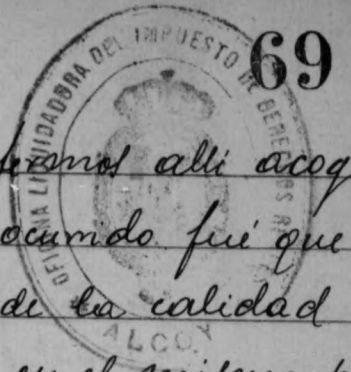 69
OFICINA LIQUIDADORA DEL IMPUESTO DE DERECHOS
ALCOY
allí acog
ocurrido fué que
de la calidad
en el mismo